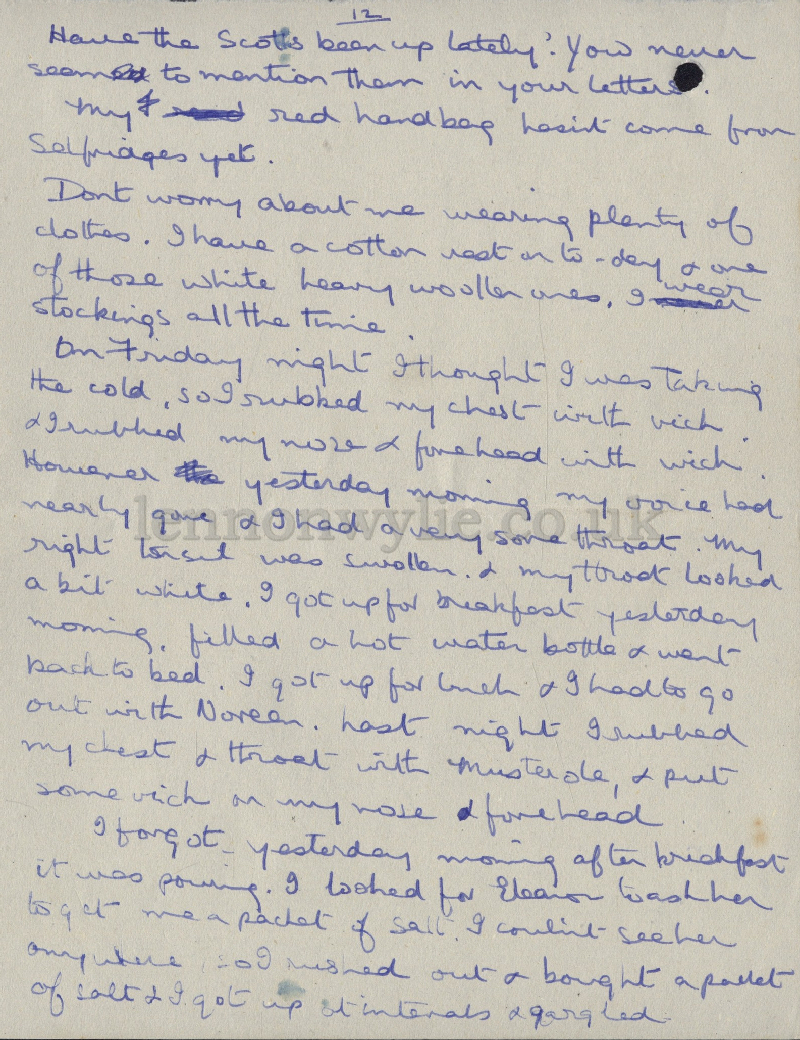 12
Have the Scotts been up lately? You never
seemed to mention them in your letters.
My red handbag hasint come from
Selfridges yet.
Dont worry about me wearing plenty of
clothes. I have a cotton vest on to-day & one
of those white heavy woollen ones. I wear
stockings all the time.
On Friday night I thought I was taking
the cold, so I rubbed my chest with vick
& I rubbed my nose & forehead with vick.
However yesterday morning my voice had
nearly gone & I had a very sore throat. My
lennonwylie.co.uk
right tonsil was swollen. & my throat looked
a bit white. I got up for breakfast yesterday
morning, filled a hot water bottle & went
back to bed. I got up for lunch & I had to go
out with Noreen. Last night I rubbed
my chest & throat with Musterole, & put
some vick on my nose & forehead
I forgot - yesterday morning after breakfast
it was pouring. I looked for Eleanor to ask her
to get me a packet of salt. I couldint see her
anywhere so I rushed out & bought a packet
of salt & I got up at intervals & gargled.